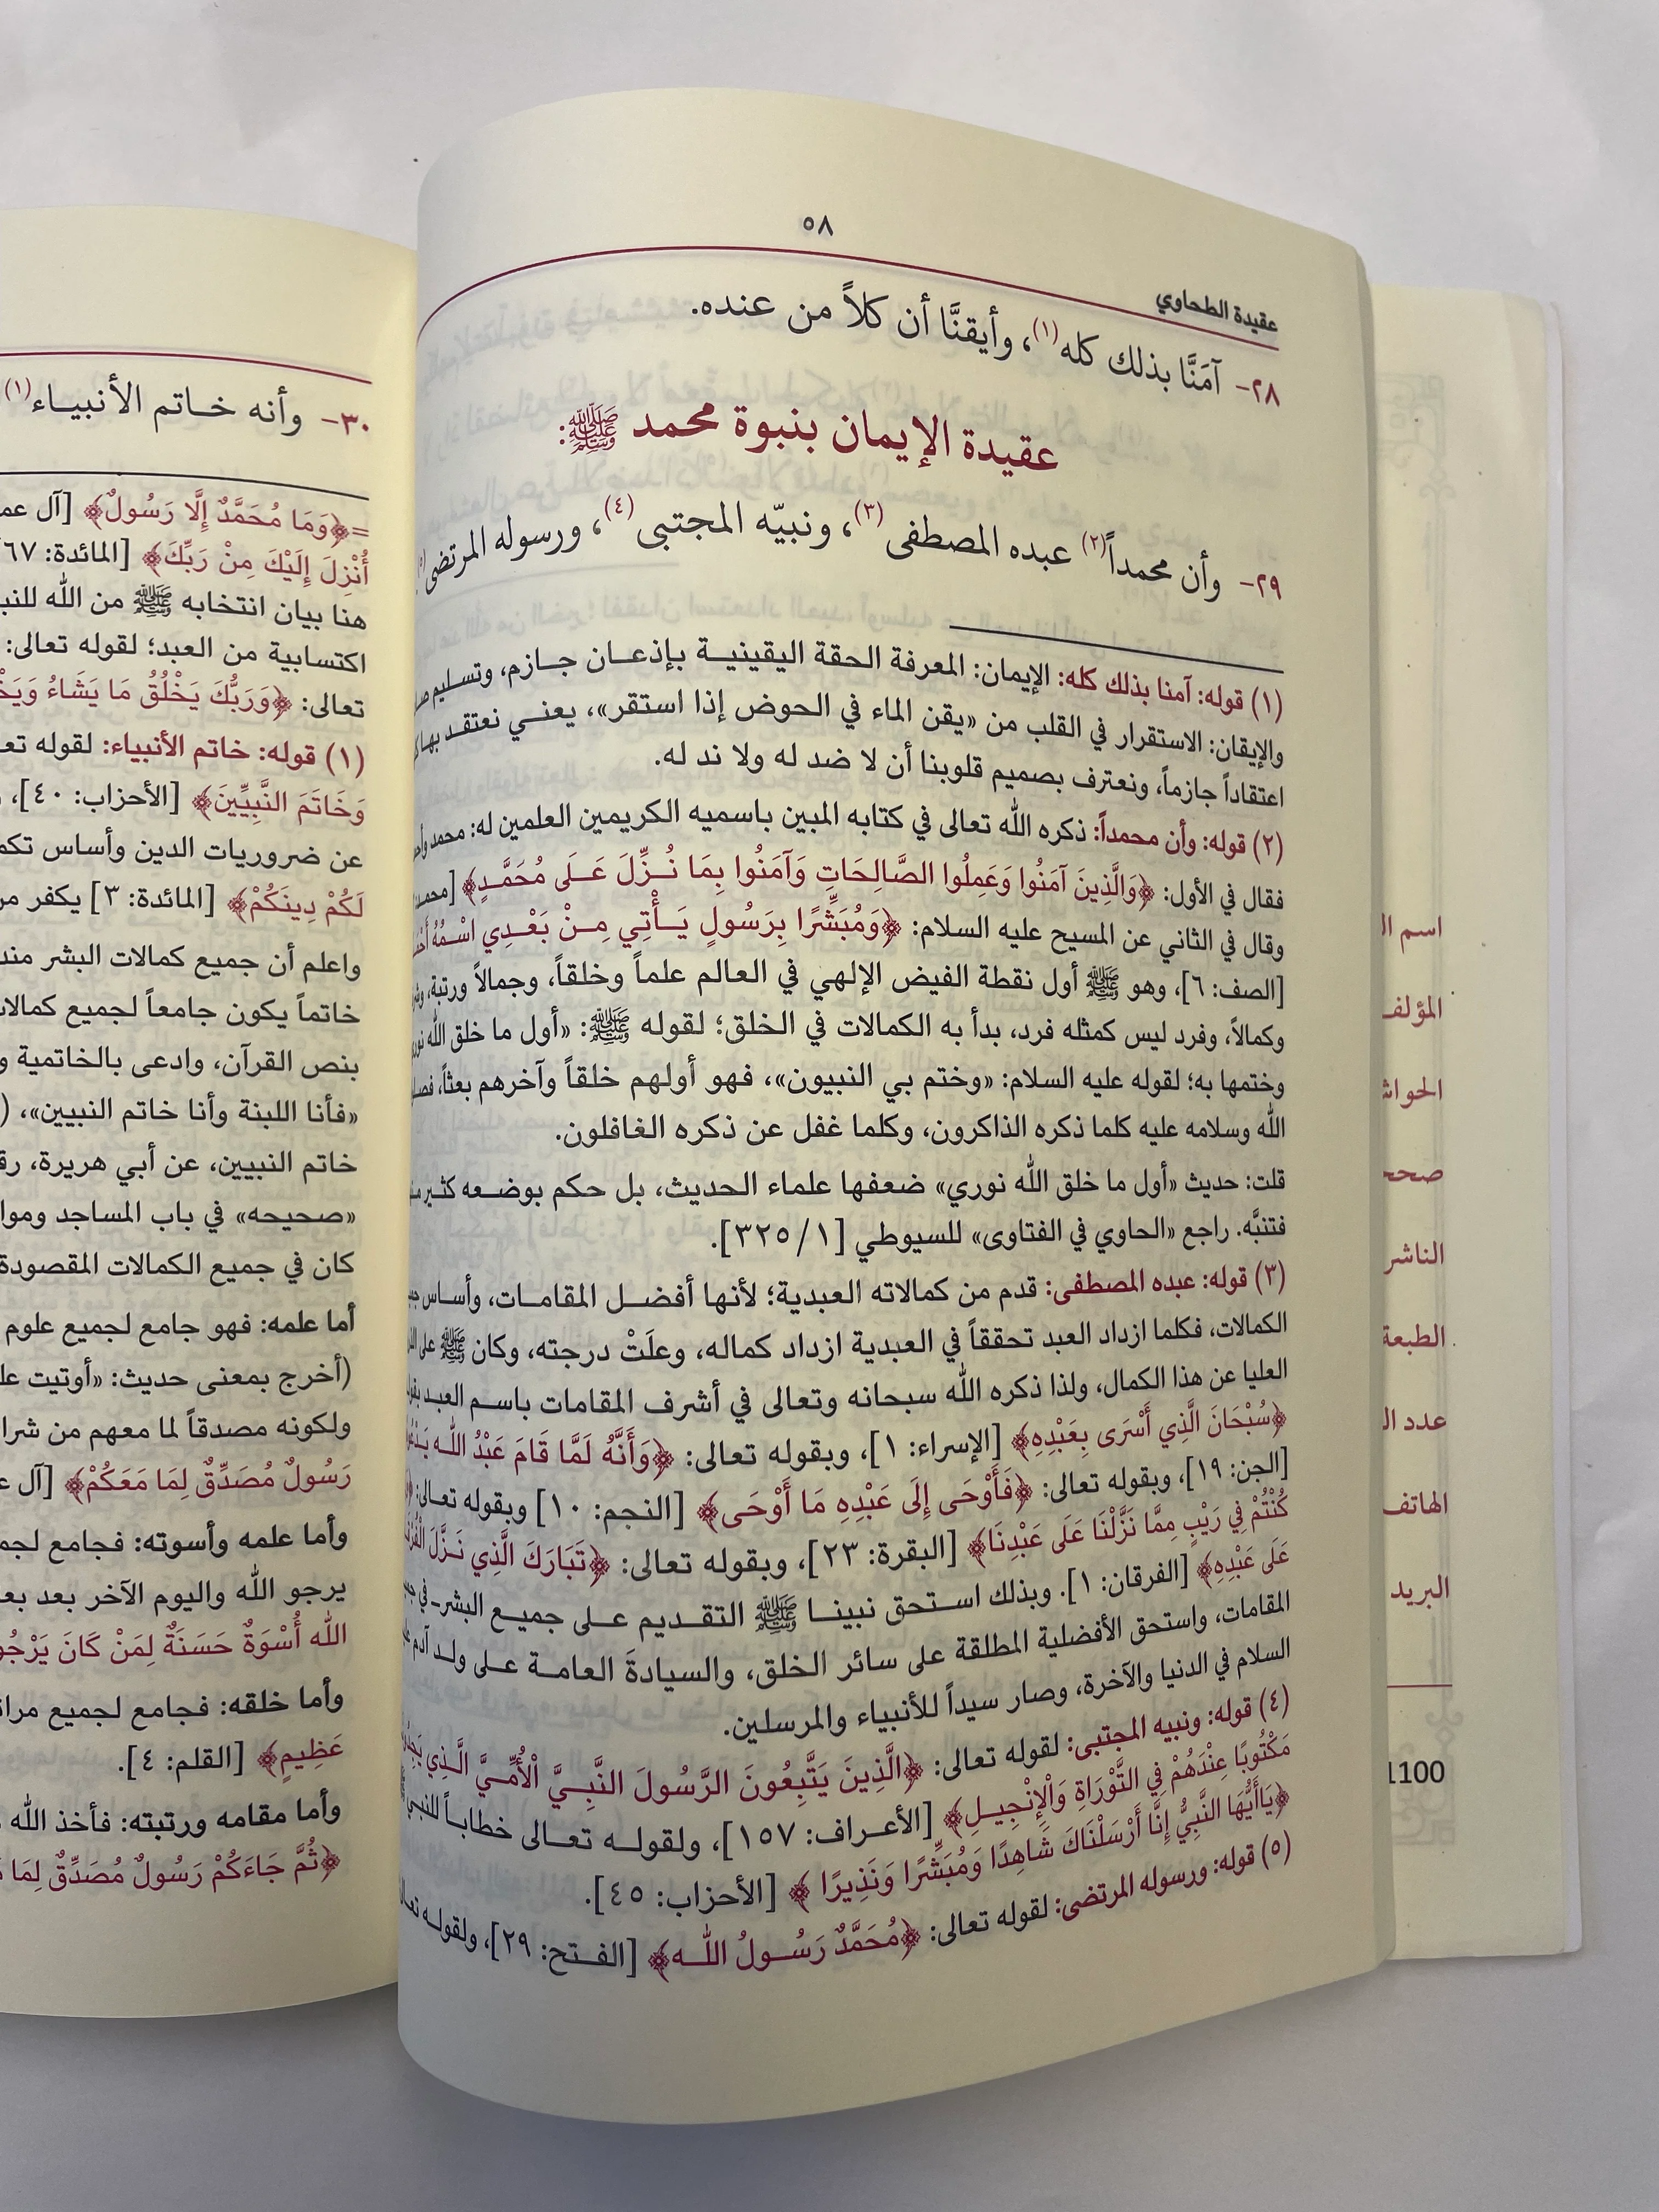 ٥٨
عقيدة الطحاوي
٢٨- آمَنَّا بذلك كله(١)، وأيقنَّا أن كلاً من عنده.
عقيدة الإيمان بنبوة محمد ﷺ:
٢٩- وأن محمداً(٢) عبده المصطفى(٣)، ونبيّه المجتبى(٤)، ورسوله المرتضى(٥)
(١) قوله: آمنا بذلك كله: الإيمان: المعرفة الحقة اليقينية بإذعان جازم، وتسليم
والإيقان: الاستقرار في القلب من «يقن الماء في الحوض إذا استقر»، يعني نعتقد
اعتقاداً جازماً، ونعترف بصميم قلوبنا أن لا ضد له ولا ند له.
(٢) قوله: وأن محمداً: ذكره الله تعالى في كتابه المبين باسميه الكريمين العلمين له: محمد
فقال في الأول: ﴿وَالَّذِينَ آمَنُوا وَعَمِلُوا الصَّالِحَاتِ وَآمَنُوا بِمَا نُزِّلَ عَلَى مُحَمَّدٍ﴾ [محمد:
وقال في الثاني عن المسيح عليه السلام: ﴿وَمُبَشِّرًا بِرَسُولٍ يَأْتِي مِنْ بَعْدِي اسْمُهُ
[الصف: ٦]، وهو ﷺ أول نقطة الفيض الإلهي في العالم علماً وخلقاً، وجمالاً ورتبة،
وكمالاً، وفرد ليس كمثله فرد، بدأ به الكمالات في الخلق؛ لقوله ﷺ: «أول ما خلق الله
وختمها به؛ لقوله عليه السلام: «وختم بي النبيون»، فهو أولهم خلقاً وآخرهم بعثاً،
الله وسلامه عليه كلما ذكره الذاكرون، وكلما غفل عن ذكره الغافلون.
قلت: حديث «أول ما خلق الله نوري» ضعفها علماء الحديث، بل حكم بوضعه كثير
فتنبَّه. راجع «الحاوي في الفتاوى» للسيوطي [١/ ٣٢٥].
(٣) قوله: عبده المصطفى: قدم من كمالاته العبدية؛ لأنها أفضل المقامات، وأساس
الكمالات، فكلما ازداد العبد تحققاً في العبدية ازداد كماله، وعلَتْ درجته، وكان ﷺ على
العليا عن هذا الكمال، ولذا ذكره الله سبحانه وتعالى في أشرف المقامات باسم العبد
﴿سُبْحَانَ الَّذِي أَسْرَى بِعَبْدِهِ﴾ [الإسراء: ١]، وبقوله تعالى: ﴿وَأَنَّهُ لَمَّا قَامَ عَبْدُ اللَّهِ
[الجن: ١٩]، وبقوله تعالى: ﴿فَأَوْحَى إِلَى عَبْدِهِ مَا أَوْحَى﴾ [النجم: ١٠] وبقوله تعالى:
كُنْتُمْ فِي رَيْبٍ مِمَّا نَزَّلْنَا عَلَى عَبْدِنَا﴾ [البقرة: ٢٣]، وبقوله تعالى: ﴿تَبَارَكَ الَّذِي نَزَّلَ
عَلَى عَبْدِهِ﴾ [الفرقان: ١]. وبذلك استحق نبينا ﷺ التقديم على جميع البشر في
المقامات، واستحق الأفضلية المطلقة على سائر الخلق، والسيادة العامة على ولد آدم
السلام في الدنيا والآخرة، وصار سيداً للأنبياء والمرسلين.
(٤) قوله: ونبيه المجتبى: لقوله تعالى: ﴿الَّذِينَ يَتَّبِعُونَ الرَّسُولَ النَّبِيَّ الْأُمِّيَّ الَّذِي
مَكْتُوبًا عِنْدَهُمْ فِي التَّوْرَاةِ وَالْإِنْجِيلِ﴾ [الأعراف: ١٥٧]، ولقوله تعالى خطاباً للنبي
﴿يَاأَيُّهَا النَّبِيُّ إِنَّا أَرْسَلْنَاكَ شَاهِدًا وَمُبَشِّرًا وَنَذِيرًا﴾ [الأحزاب: ٤٥].
(٥) قوله: ورسوله المرتضى: لقوله تعالى: ﴿مُحَمَّدٌ رَسُولُ اللَّهِ﴾ [الفتح: ٢٩]، ولقوله
٣٠- وأنه خاتم الأنبياء(١)
=﴿وَمَا مُحَمَّدٌ إِلَّا رَسُولٌ﴾ [آل
أُنْزِلَ إِلَيْكَ مِنْ رَبِّكَ﴾ [المائدة: ٦٧
هنا بيان انتخابه ﷺ من الله
اكتسابية من العبد؛ لقوله تعالى:
تعالى: ﴿وَرَبُّكَ يَخْلُقُ مَا يَشَاءُ
(١) قوله: خاتم الأنبياء: لقوله
وَخَاتَمَ النَّبِيِّينَ﴾ [الأحزاب: ٤٠]،
عن ضروريات الدين وأساس
لَكُمْ دِينَكُمْ﴾ [المائدة: ٣] يكفر
واعلم أن جميع كمالات البشر
خاتماً يكون جامعاً لجميع
بنص القرآن، وادعى بالخاتمية
«فأنا اللبنة وأنا خاتم النبيين»، (
خاتم النبيين، عن أبي هريرة،
«صحيحه» في باب المساجد
كان في جميع الكمالات المقصودة
أما علمه: فهو جامع لجميع علوم
(أخرج بمعنى حديث: «أوتيت
ولكونه مصدقاً لما معهم من
رَسُولٌ مُصَدِّقٌ لِمَا مَعَكُمْ﴾ [آل
وأما علمه وأسوته: فجامع
يرجو الله واليوم الآخر بعد
الله أُسْوَةٌ حَسَنَةٌ لِمَنْ كَانَ
وأما خلقه: فجامع لجميع
عَظِيمٍ﴾ [القلم: ٤].
وأما مقامه ورتبته: فأخذ الله
﴿ثُمَّ جَاءَكُمْ رَسُولٌ مُصَدِّقٌ لِمَا
اسم
المؤلف
الناشر
الطبعة
عدد
الهاتف
البريد
1100